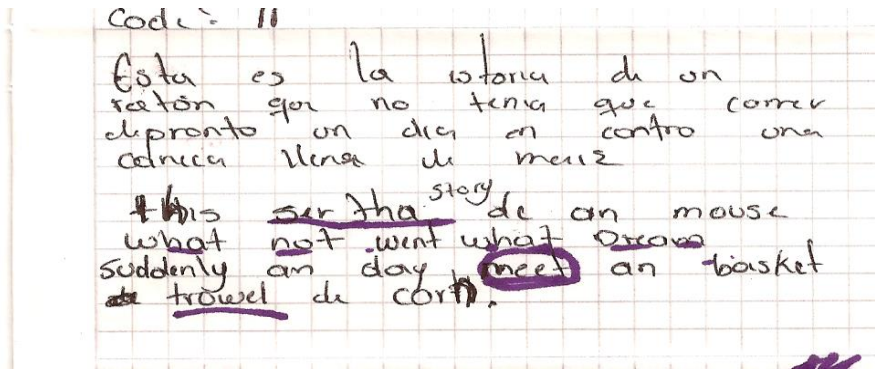 Code: 11
Esta es la istoria de un
ratón que no tenia que comer
depronto un dia en contro una
llena de maiz
this ser tha story de an mouse
what not went what
suddenly an day meet an basket
trowel de corn.